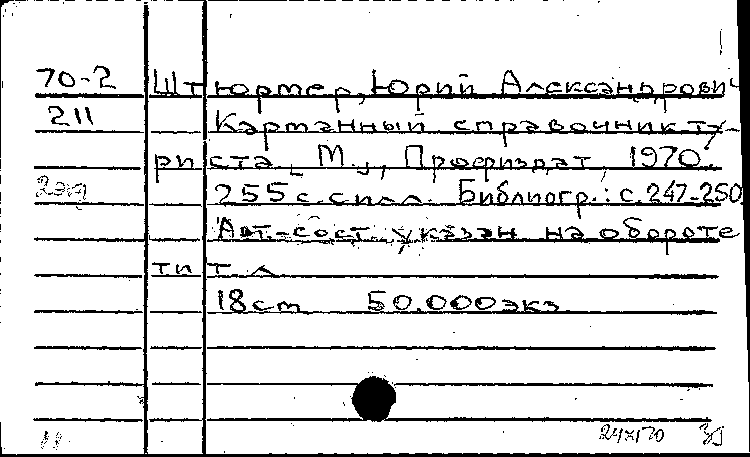 70-2 Штюрмер, Юрий Александрович
211 Карманный справочник ту-
риста. М., Профиздат, 1970.
2экз 255 с. с илл. Библиогр.: с. 247-250
Авт.-сост. указан на обороте
тит. л
18cm 50.000 экз